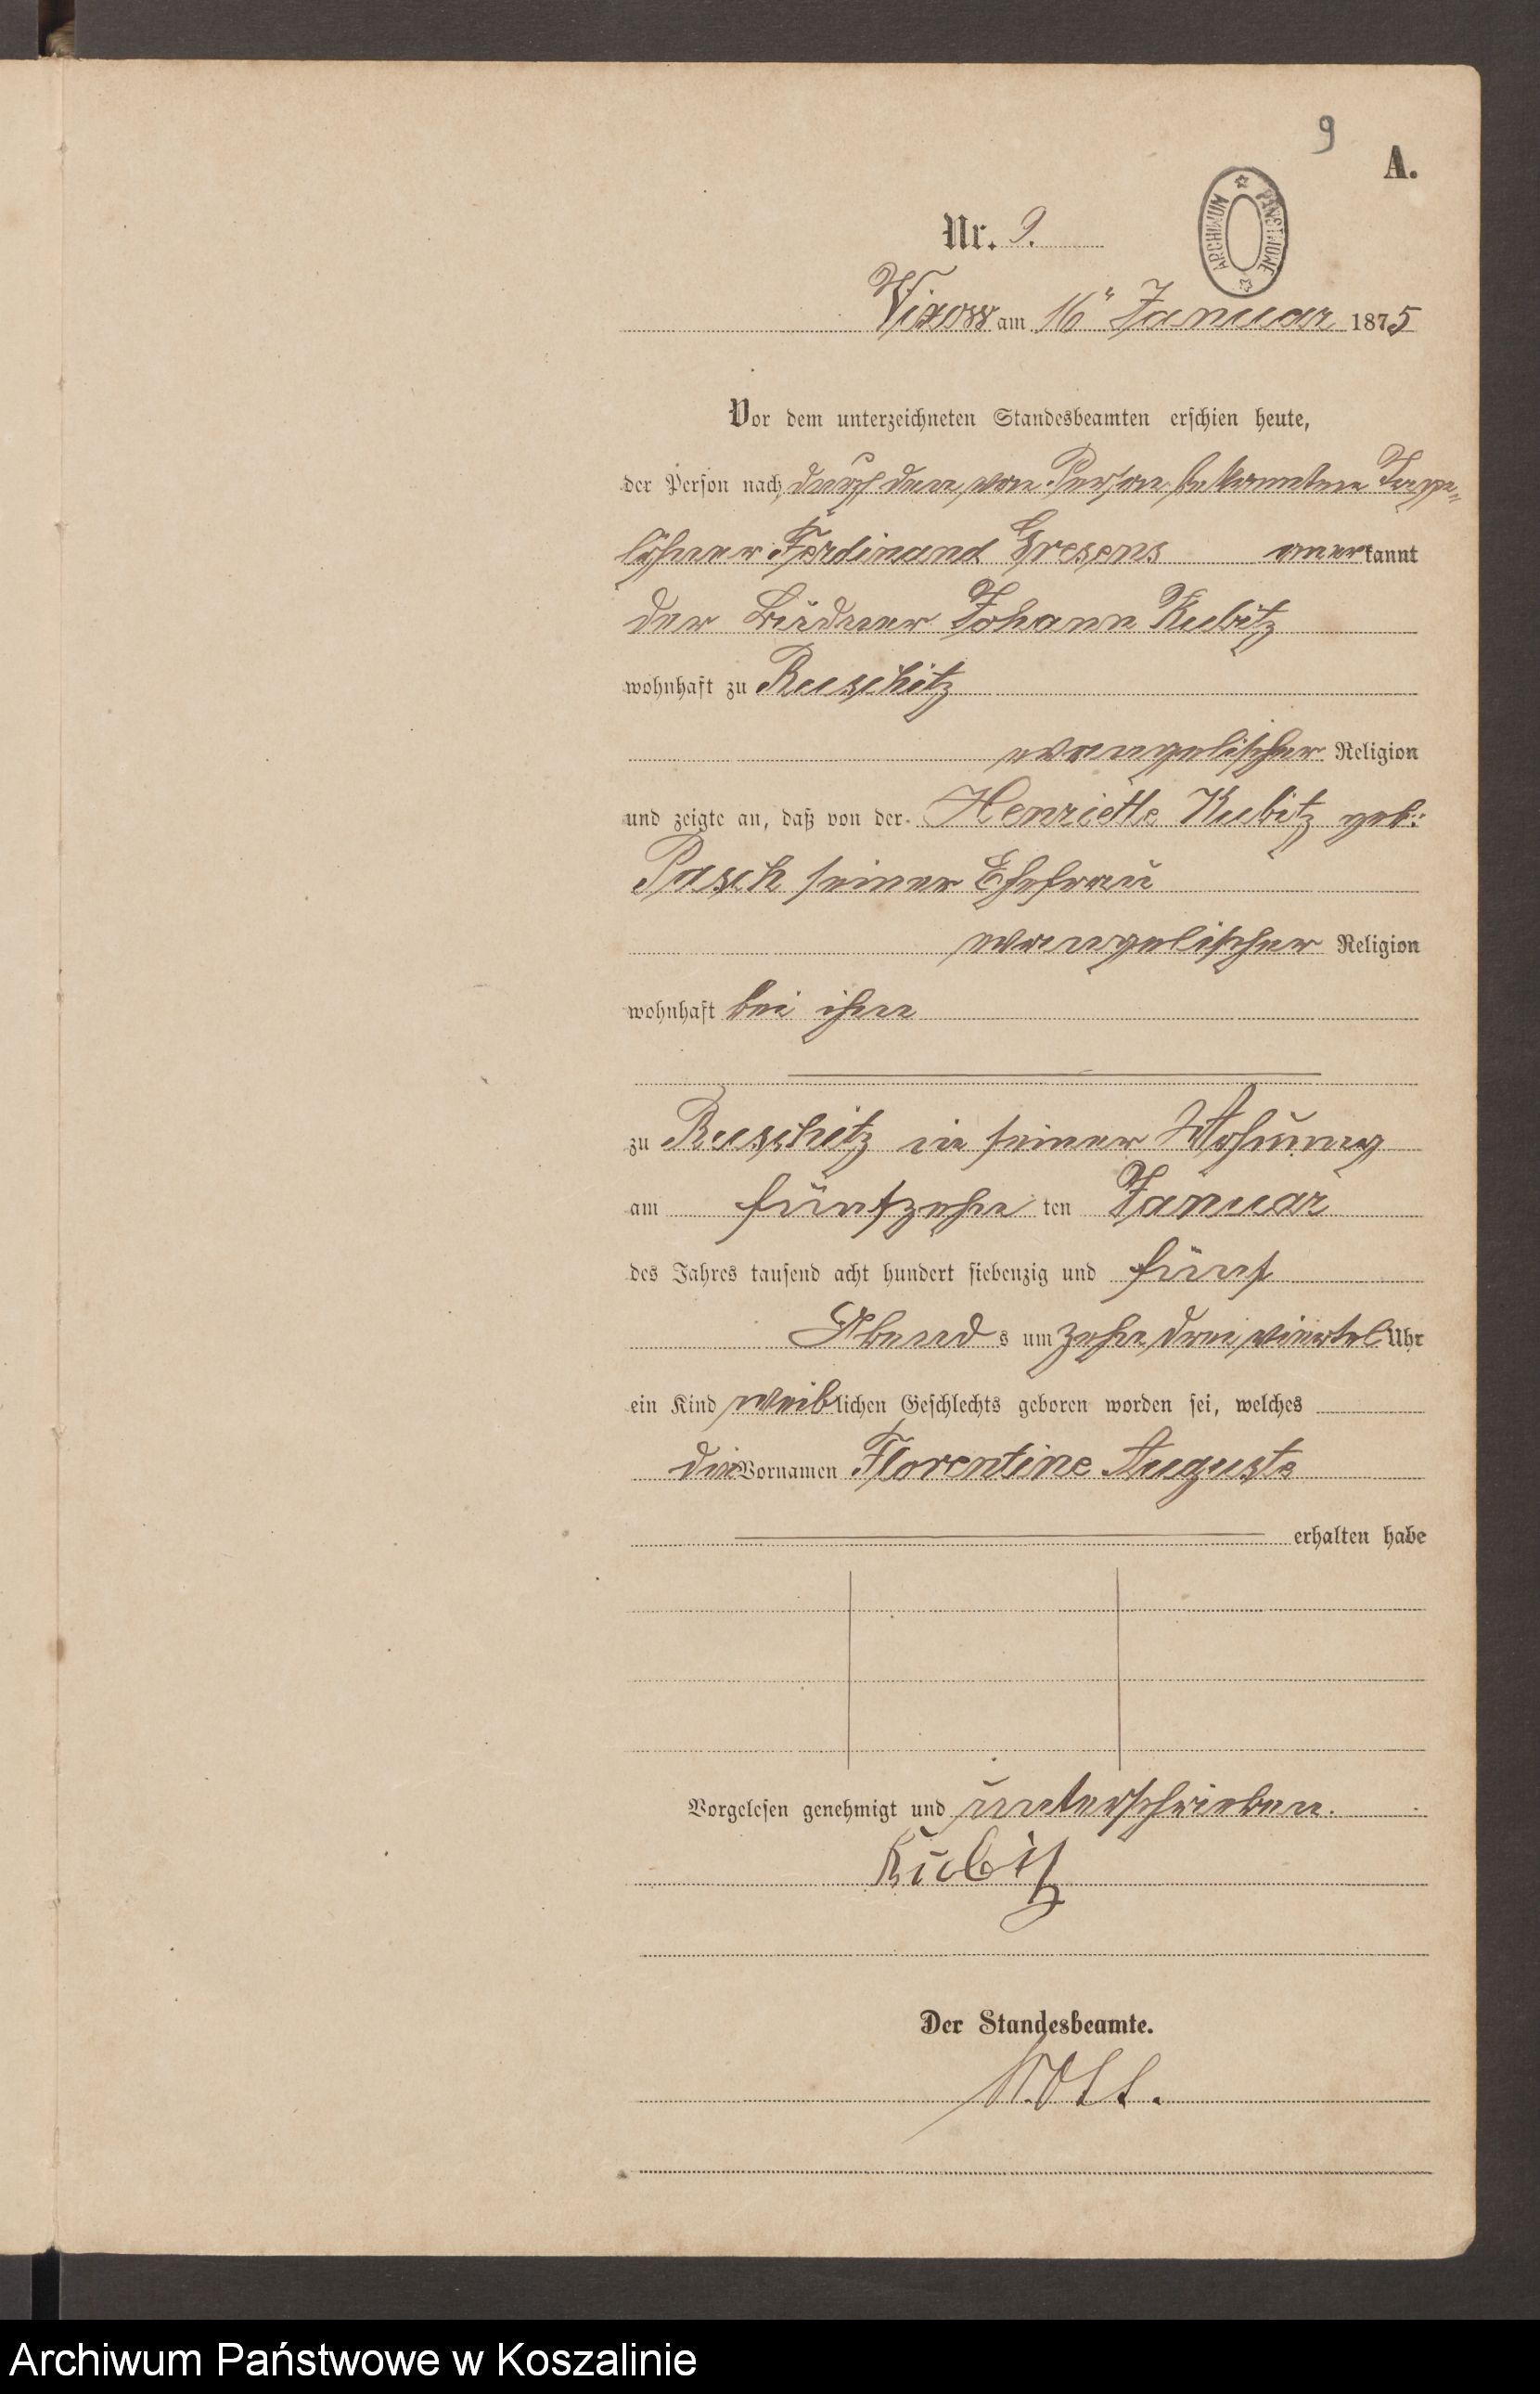 9
A.
ARCHIWUM PAŃSTWOWE
Nr. 9.
Vixow am 16" Januar 1875
Vor dem unterzeichneten Standesbeamten erschien heute,
der Person nach durch den von Person bekannten Tage-
löhner Ferdinand Gresens anerkannt
der Büdner Johann Kubitz
wohnhaft zu Ruschitz
evangelischer Religion
und zeigte an, daß von der Henriette Kubitz geb:
Pasch seiner Ehefrau
evangelischer Religion
wohnhaft bei ihm
zu Ruschitz in seiner Wohnung
am fünfzehn ten Januar
des Jahres tausend acht hundert siebenzig und fünf
Abend s um zehn drei viertel Uhr
ein Kind weiblichen Geschlechts geboren worden sei, welches
die Vornamen Florentine Auguste
erhalten habe
Vorgelesen genehmigt und unterschrieben.
Kubitz
Der Standesbeamte.
Archiwum Państwowe w Koszalinie